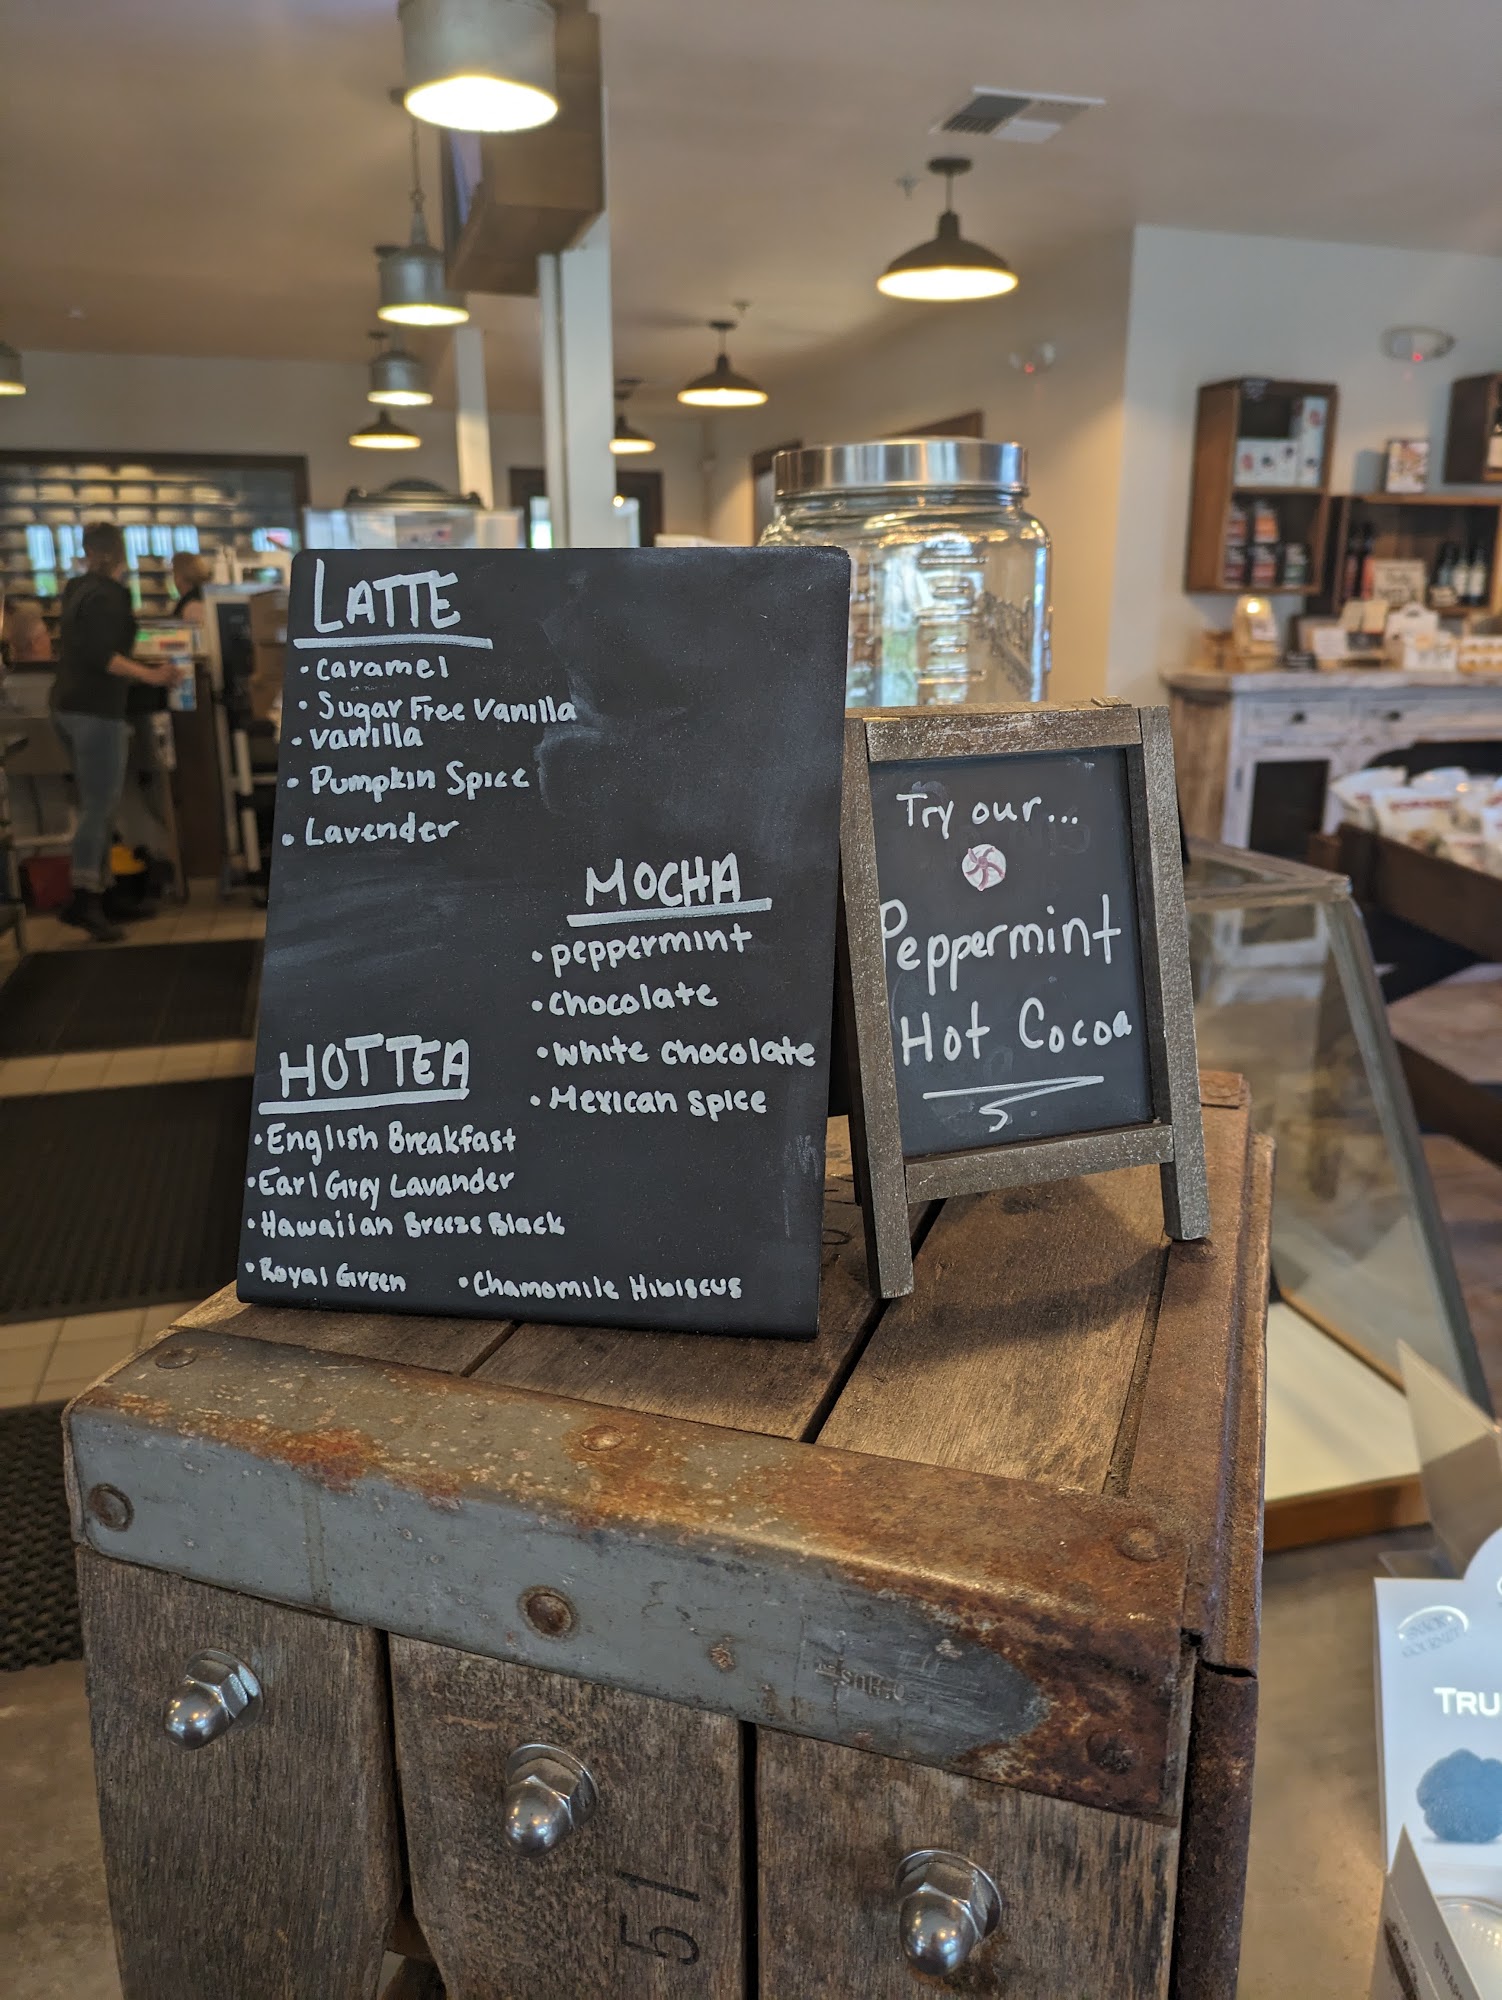 LATTE
• caramel
• Sugar Free Vanilla
• vanilla
• Pumpkin Spice
• Lavender
MOCHA
• peppermint
• chocolate
• white chocolate
• Mexican spice
HOT TEA
• English Breakfast
• Earl Grey Lavander
• Hawaiian Breeze Black
• Royal Green • Chamomile Hibiscus
Try our...
Peppermint
Hot Cocoa
5.
51
TRU